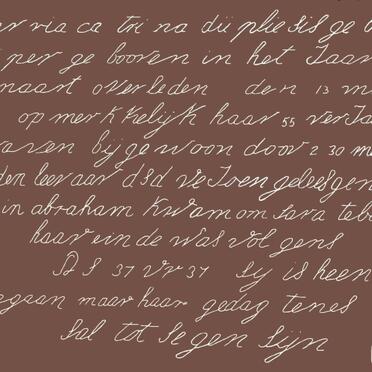 er via ca tri na du plie sis ge
per ge booren in het Jaar
maart overleden den 13 m
op mer kkelijk haar 55 verJa
arsen bij ge woon door 2 30 me
den leeraar dsd ve Toen geleesgen
in abraham kwam om sara tebe
haar ein de was vol gens
Ps 37 vr 37 sy is heen
egaan maar haar gedag tenes
sal tot se gen sijn